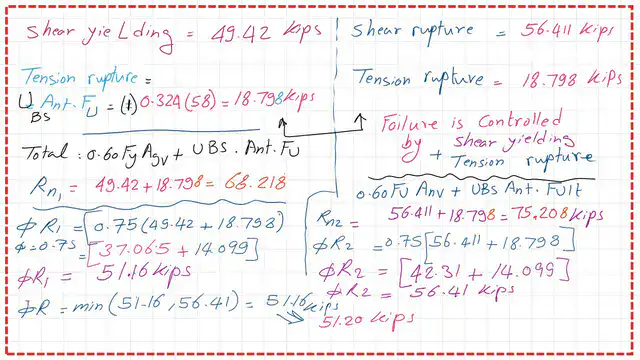 Shear yieLding = 49.42 Kips
Tension rupture =
UBS Ant. FU = (1) 0.324(58) = 18.798 Kips
Total : 0.60 Fy Agv + UBS. Ant. FU
Rn1 = 49.42 + 18.798 = 68.218
φR1 = [0.75(49.42 + 18.798)
φ=0.75 = [37.065 + 14.099]
φR1 = 51.16 Kips
φR = min(51.16, 56.41) = 51.16 Kips
51.20 Kips
Shear rupture = 56.411 Kips
Tension rupture = 18.798 Kips
Failure is Controlled
by Shear yielding
+ Tension rupture
0.60 FU Anv + UBS Ant. FUlt
Rn2 = 56.411 + 18.798 = 75.208 Kips
φR2 = 0.75[56.411 + 18.798]
φR2 = [42.31 + 14.099]
φR2 = 56.41 Kips